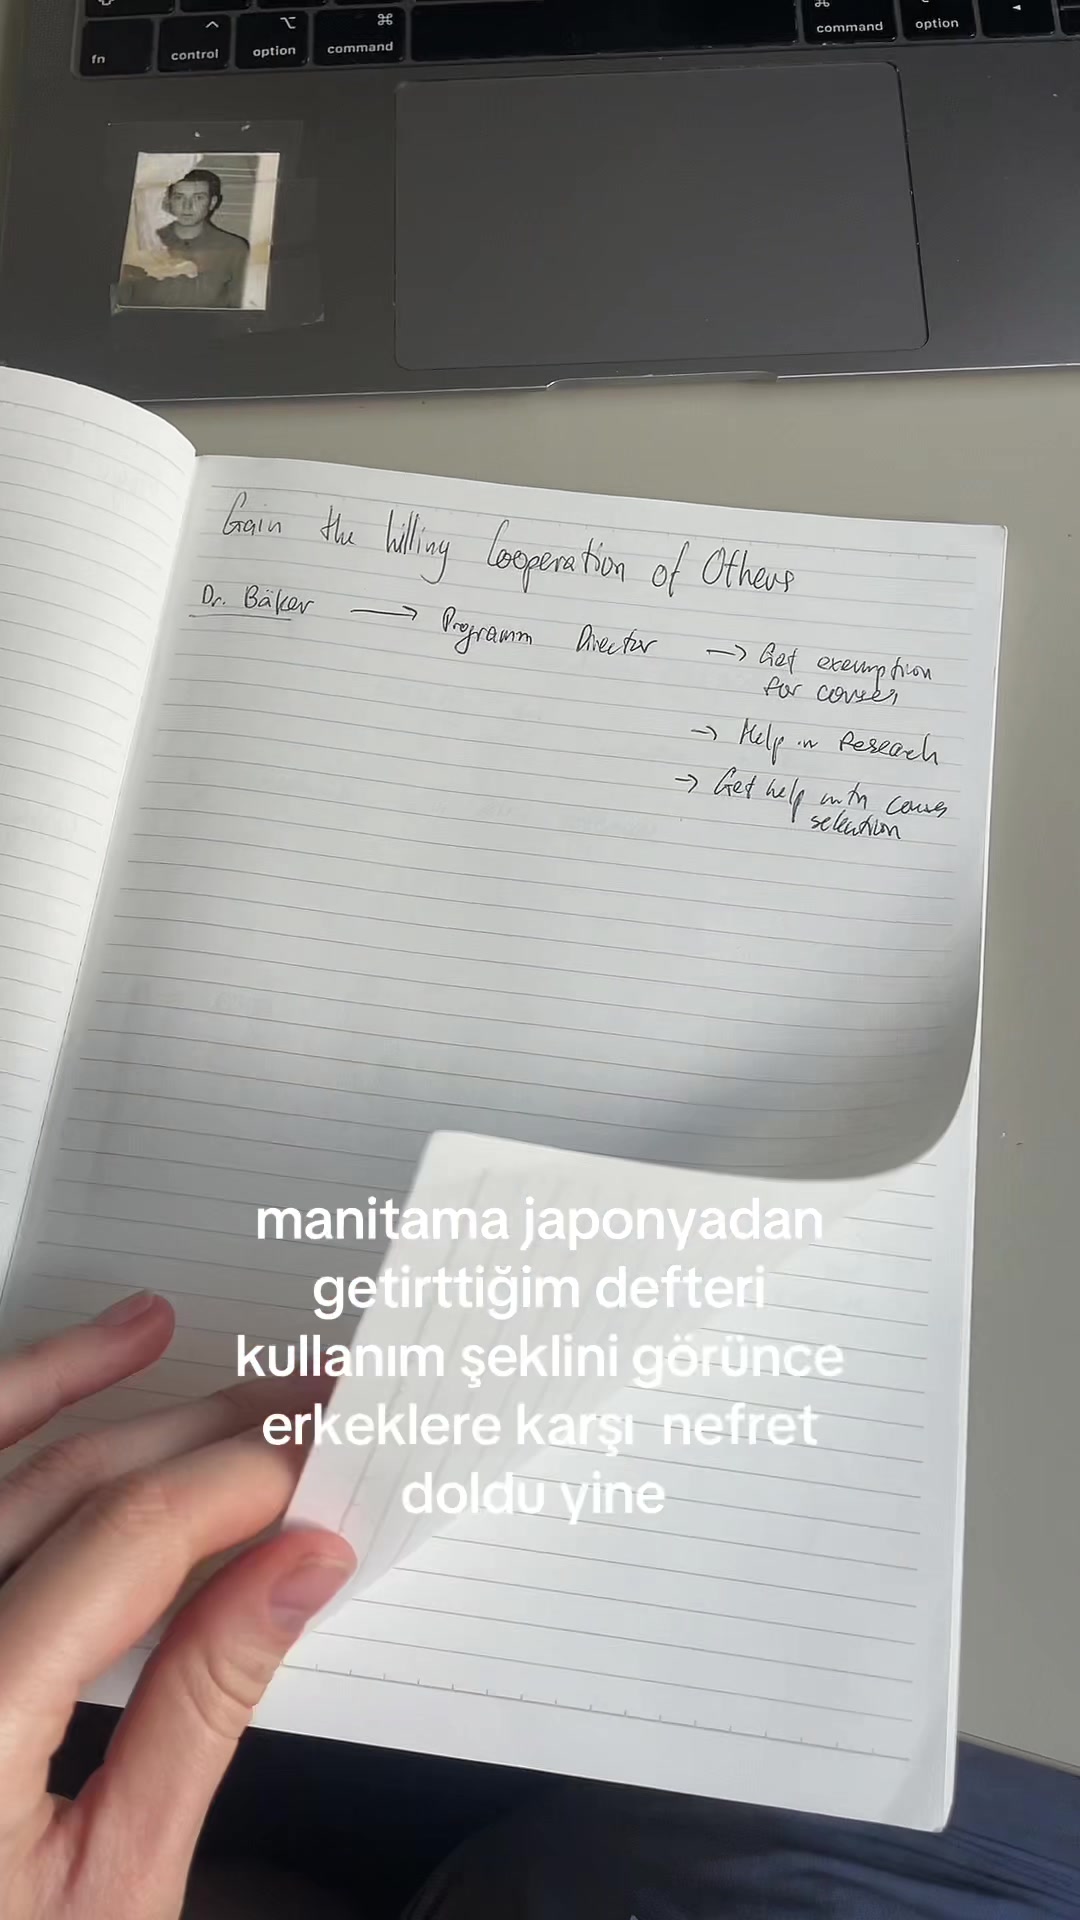 fn control option command command option
Gain the Willing Cooperation of Others
Dr. Bäker → Programm Director → Get exemption
for courses
→ Help in Research
→ Get help with course
selection
manitama japonyadan
getirttiğim defteri
kullanım şeklini görünce
erkeklere karşı nefret
doldu yine